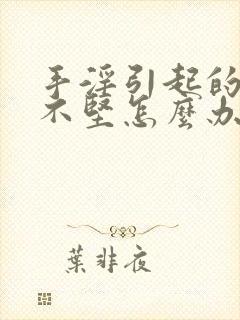 手淫引起的
不坚怎麽办
葉非夜